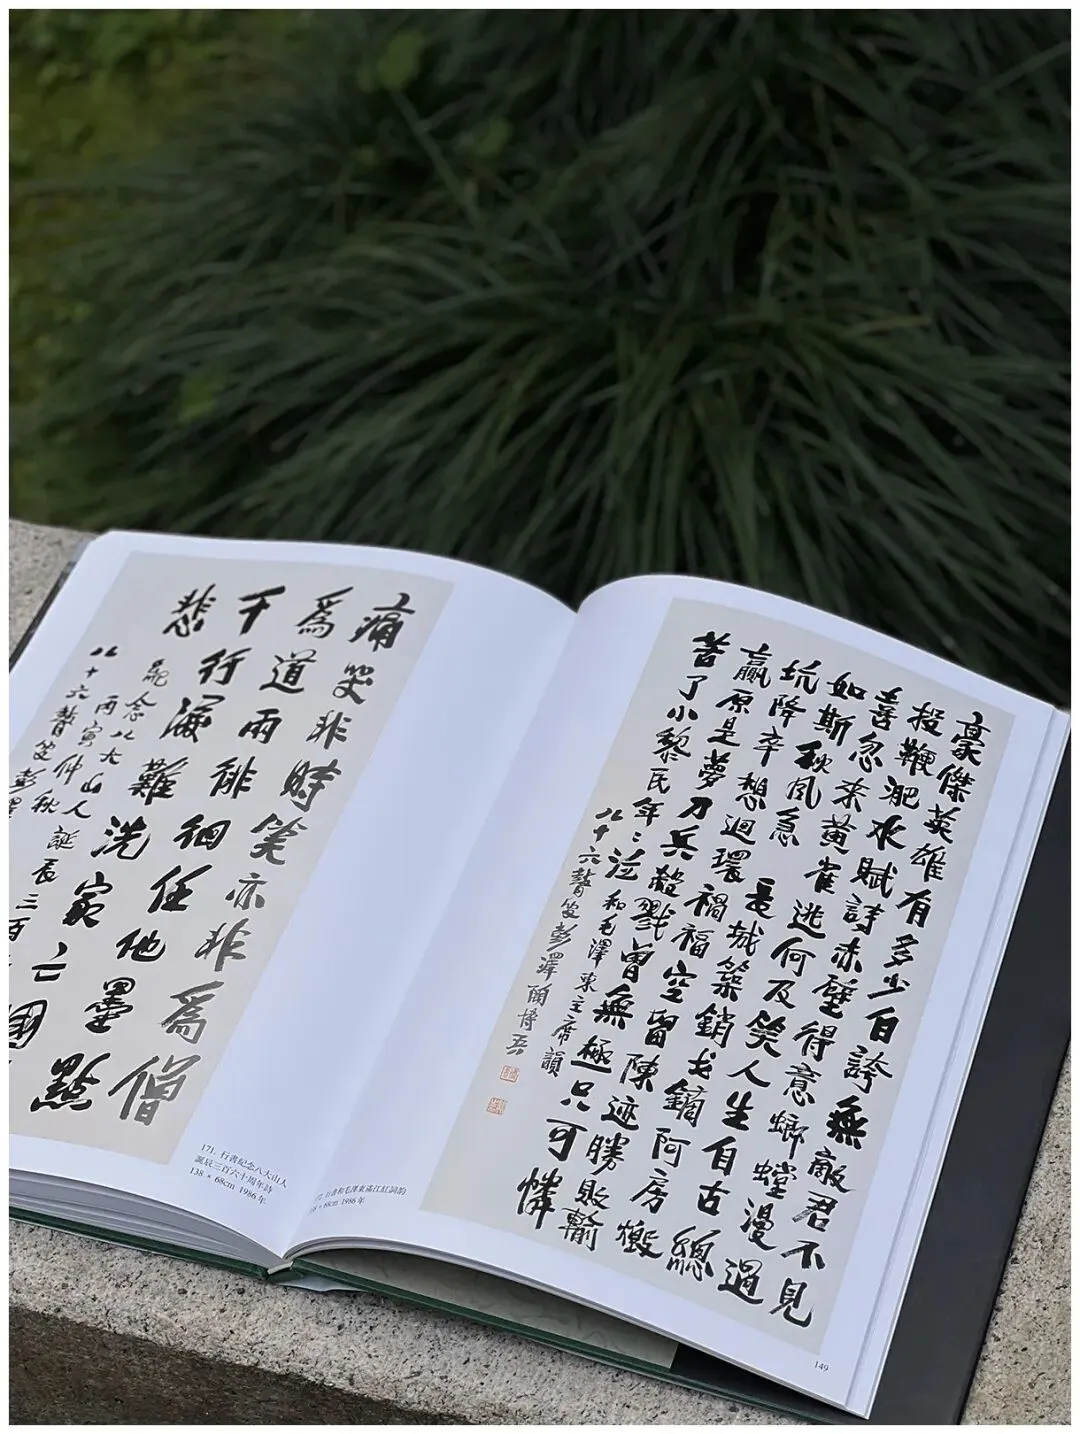 痛哭非時笑亦非為僧
為道兩徘徊任他墨點
千行淚難洗家亡國
悲
紀念八大山人誕辰三百
丙寅仲秋
八十六聾叟彭澤
171. 行書紀念八大山人
誕辰三百六十周年詩
138 × 68cm 1986 年
豪傑英雄有多少自誇無敵君不見
投鞭淝水賦詩赤壁得意螂螳漫過
喜忽來黃雀逃何及笑人生自古總
如斯秋風急 長城築銷戈鏑阿房燬
坑降卒想迴環禍福空留陳迹勝敗輸
贏原是夢刀兵殺戮曾無極只可憐
苦了小黎民年〻泣 和毛澤東主席韻
八十六聾叟彭澤陶博吾
行書和毛澤東滿江紅詞韵
× 68cm 1986 年
149